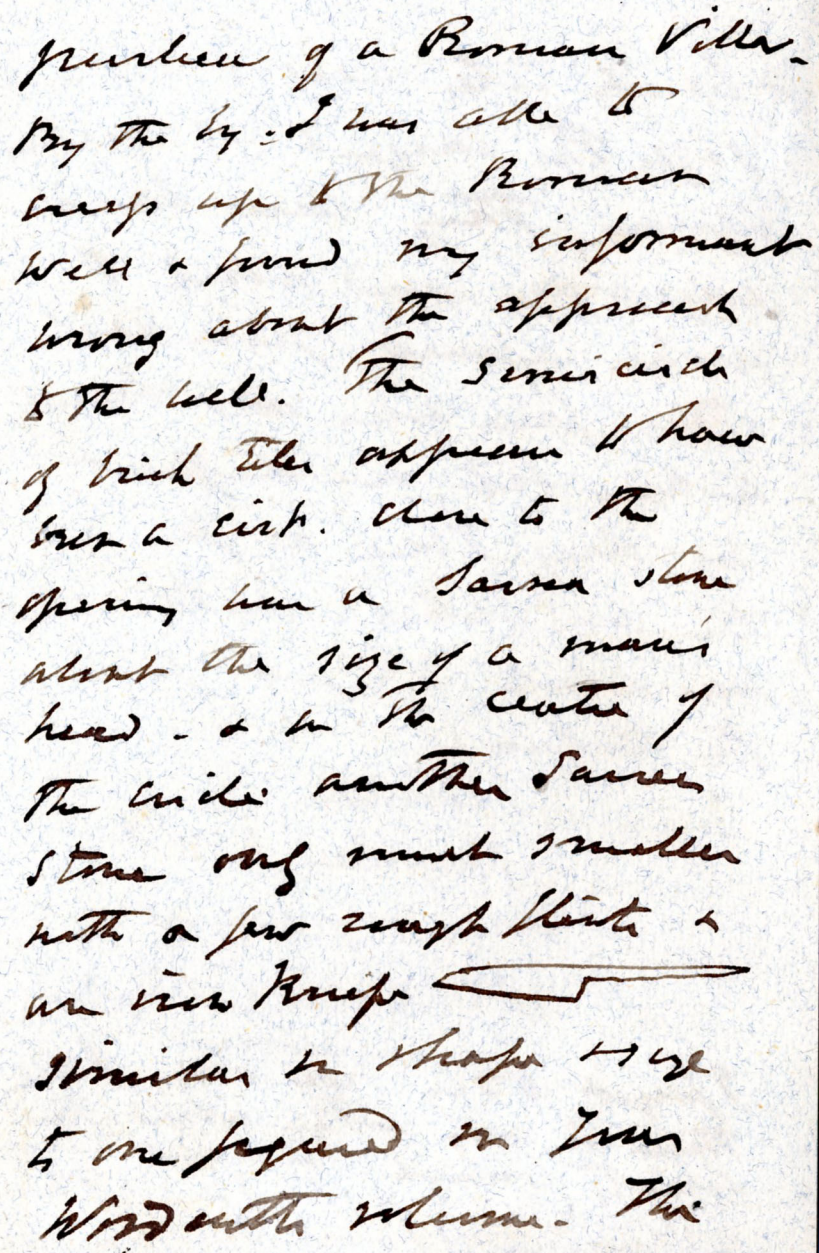 of a Roman Villa.
By the by. I was able to
creep up to the Roman
Well & found my informant
wrong about the approach
to the well. The Semicircle
of brick tiles appears to have
been a cist. close to the
opening was a Sarsen stone
about the size of a man's
head - & in the centre of
the circle another Sarsen
Stone only much smaller
with a few rough flints &
an iron Knife
Similar in shape & size
to one figured in your
volume. The